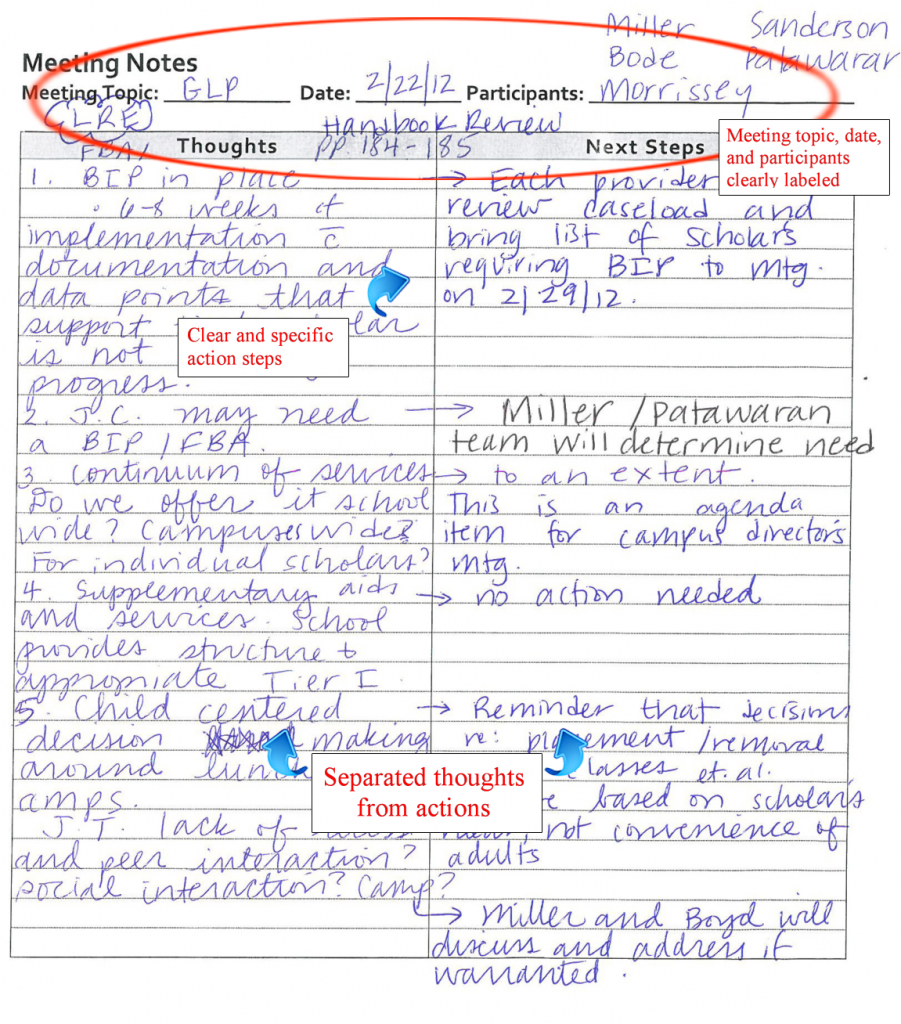 Miller Sanderson
Bode Patawaran
Meeting Notes
Meeting Topic: GLP Date: 2/22/12 Participants: Morrissey
(LRE) Handbook Review
pp. 184-185
Meeting topic, date,
and participants
clearly labeled
Thoughts
FBA/
1. BIP in place
• 6-8 weeks of
implementation c̄
documentation and
data points that
support
is not
progress.
2. J.C. may need
a BIP / FBA.
3. Continuum of services
Do we offer it school
wide? Campuses wide?
For individual scholars?
4. Supplementary aids
and services. School
provides structure +
appropriate Tier I.
5. Child centered
decision making
around
amps.
J.T. lack of
and peer interaction?
social interaction? Camp?
Next Steps
→ Each provider
review caseload and
bring list of scholars
requiring BIP to mtg.
on 2/29/12.
→ Miller / Patawaran
team will determine need
→ to an extent.
This is an agenda
item for campus director's
mtg.
→ no action needed
→ Reminder that decisions
re: placement / removal
classes et. al.
based on scholar's
not convenience of
adults
→ Miller and Boyd will
discuss and address if
warranted.
Clear and specific
action steps
Separated thoughts
from actions